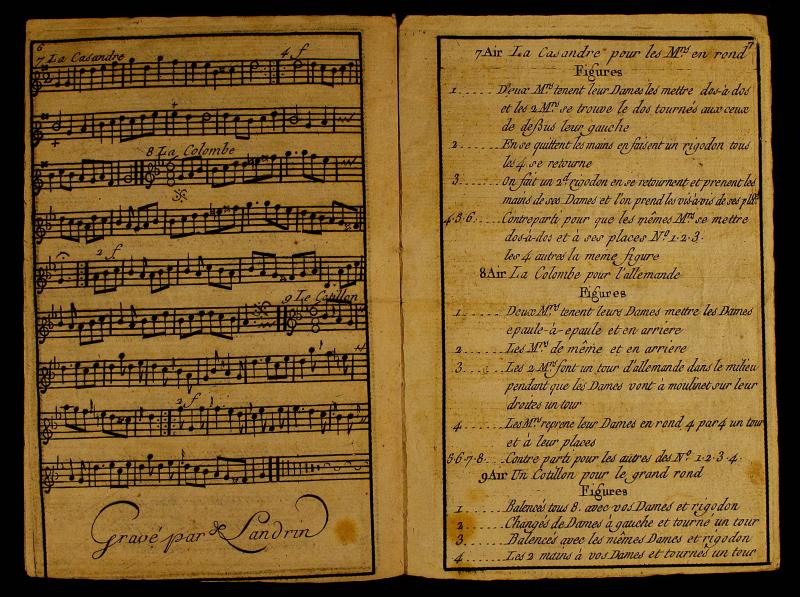 6
7 La Casandre
4 f
8 La Colombe
2 f
9 Le Cotillon
2 f
Gravé par de Landrin
7
7 Air La Casandre pour les M.rs en rond
Figures
1 ...... Deux M.rs tenent leur Dames les mettre dos-à dos
et les 2 M.rs se trouve le dos tournés aux ceux
de deßus leur gauche
2 ...... En se quittent les mains en faisent un rigodon tous
les 4 se retourne
3 ...... On fait un 2.d rigodon en se retournent et prenent les
mains de ses Dames et l'on prend les vis-à-vis de ses
4.5.6. ..... Contreparti pour que les mêmes M.rs se mettre
dos-à-dos et à ses places N.o 1.2.3.
les 4 autres la meme figure
8 Air La Colombe pour l'allemande
Figures
1 ...... Deux M.rs tenent leurs Dames mettre les Dames
epaule-à-epaule et en arriere
2 ...... Les M.rs de même et en arriere
3 ...... Les 2 M.rs font un tour d'allemande dans le milieu
pendant que les Dames vont à moulinet sur leur
droites un tour
4 ...... Les M.rs reprene leur Dames en rond 4 par 4 un tour
et à leur places
5.6.7.8. ... Contre parti pour les autres des N.o 1.2.3.4.
9 Air Un Cotillon pour le grand rond
Figures
1 ...... Balencés tous 8. avec vos Dames et rigodon
2 ...... Changés de Dames à gauche et tourné un tour
3 ...... Balencés avec les mêmes Dames et rigodon
4 ...... Les 2 mains à vos Dames et tournés un tour